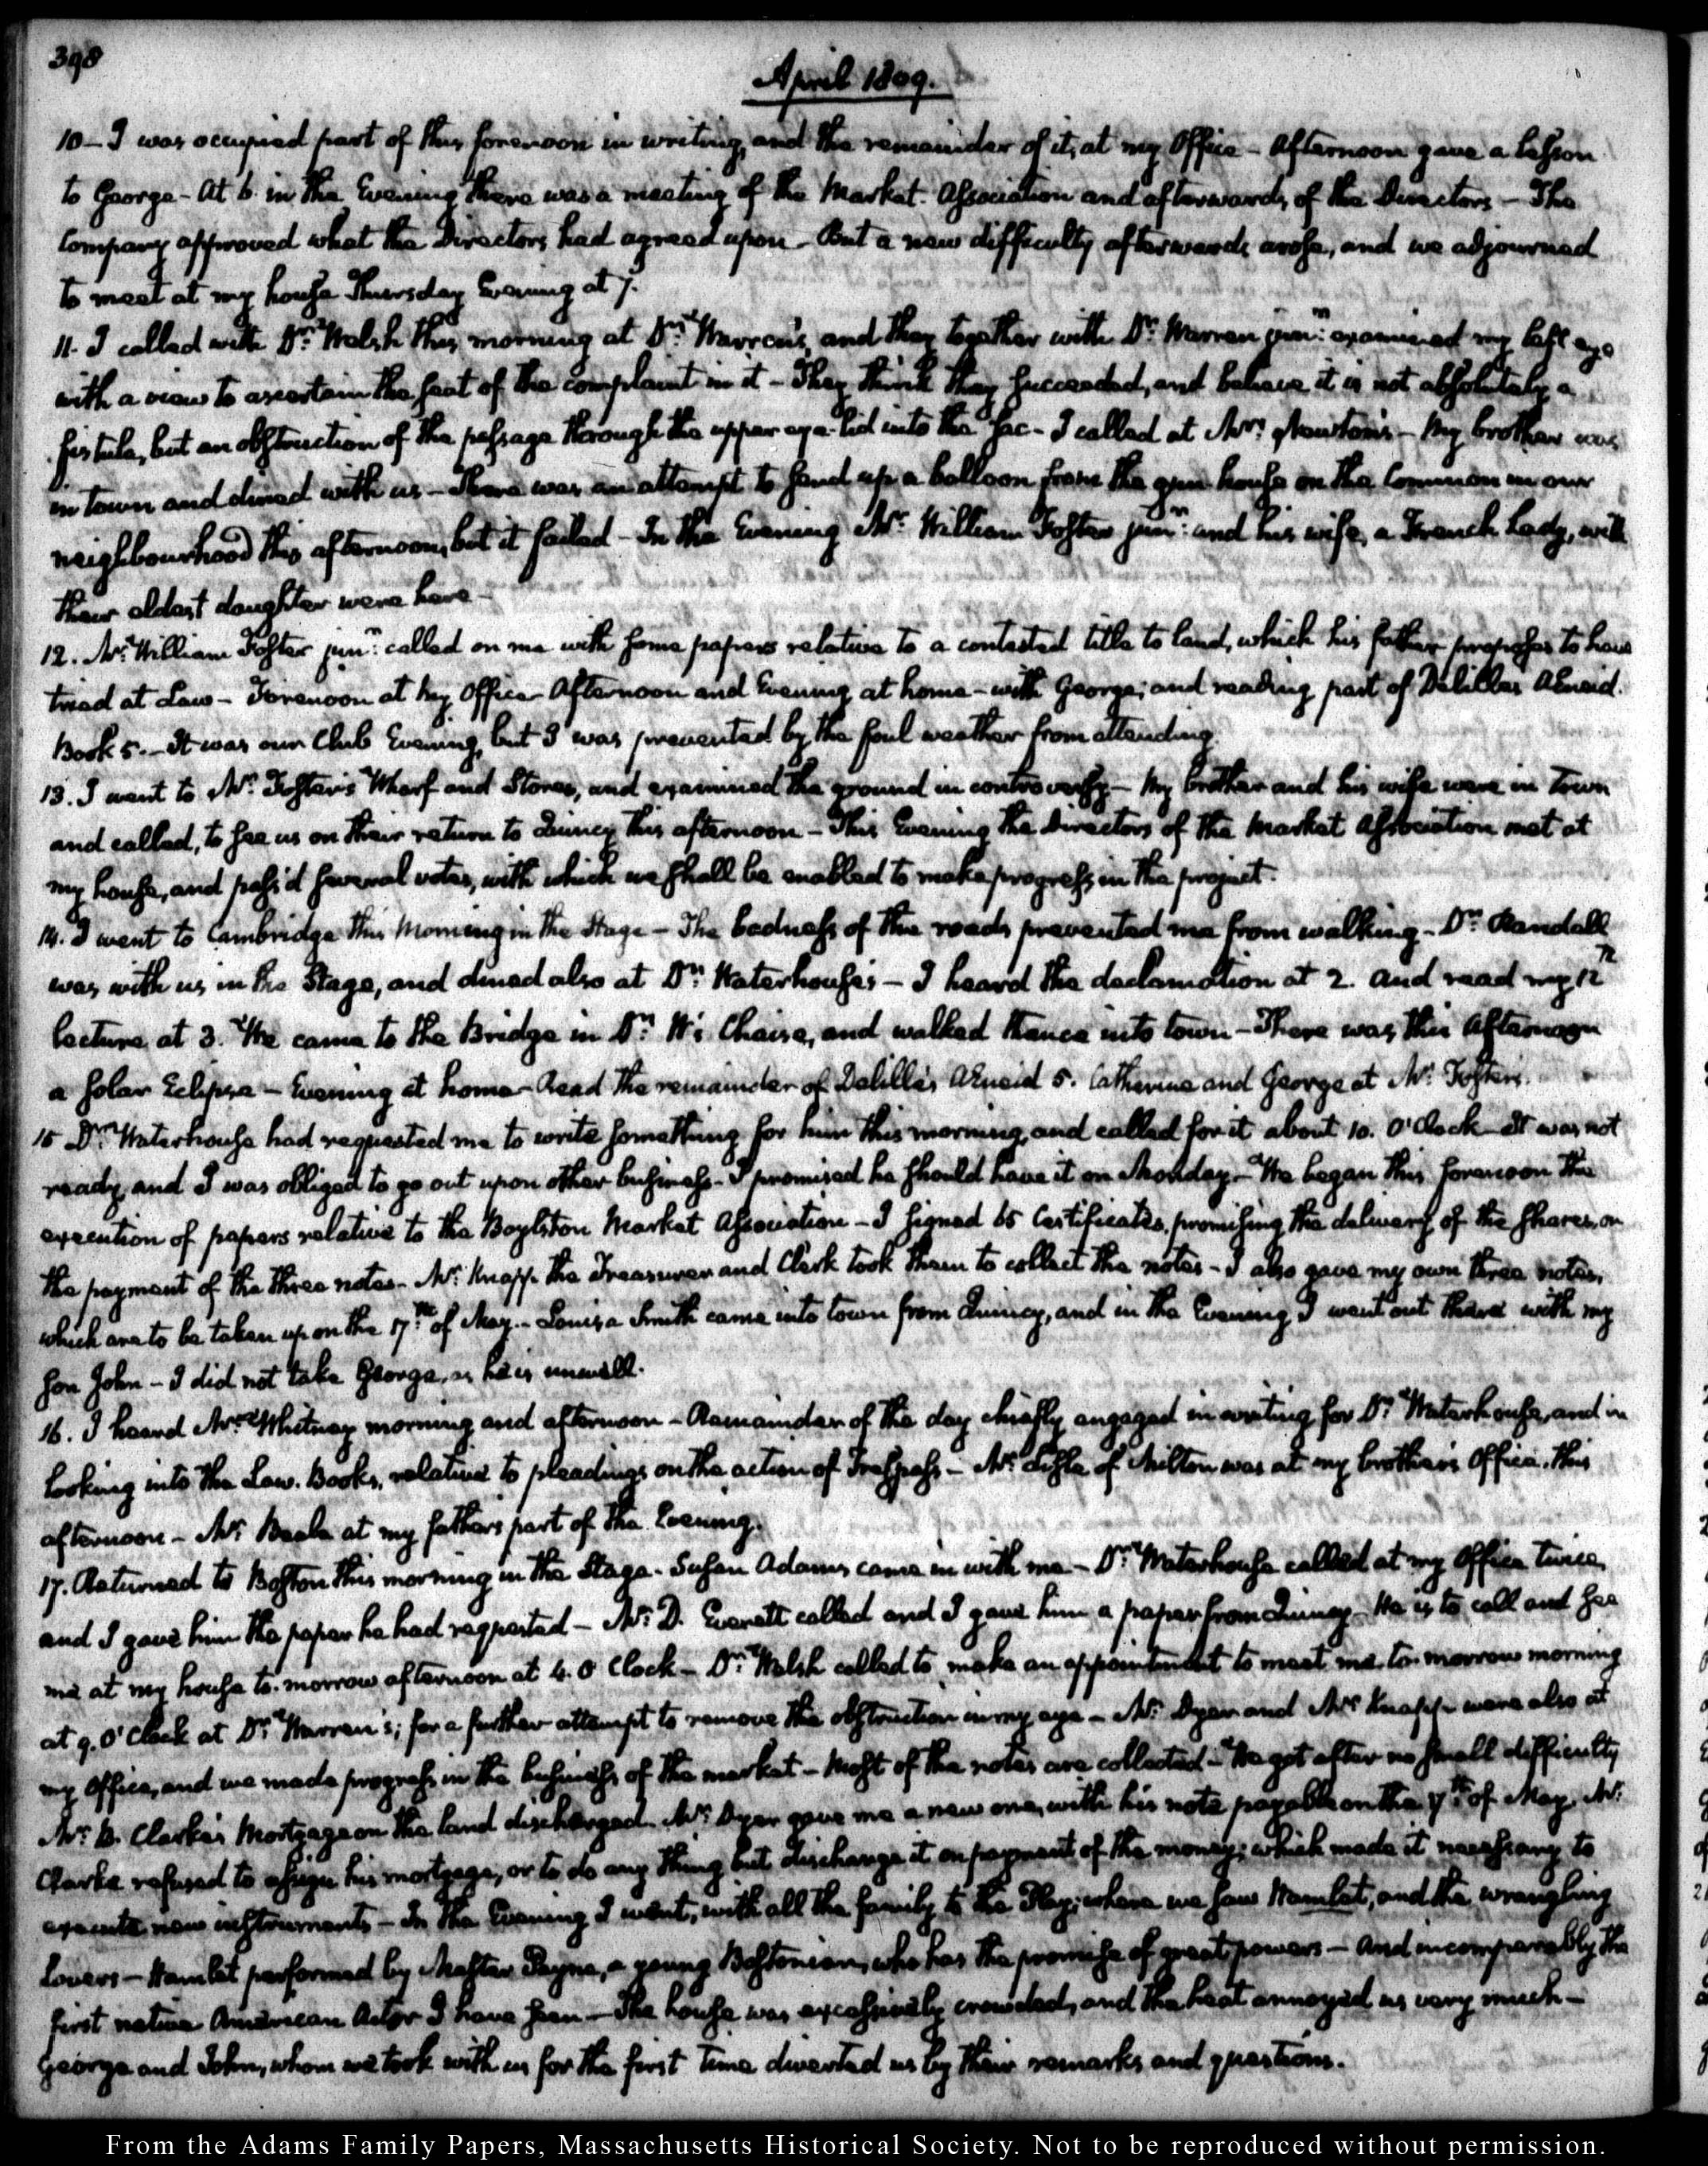 398
April 1809.
10 - I was occupied part of this forenoon in writing, and the remainder of it, at my Office - Afternoon gave a lesson
to George - At 6. in the Evening there was a meeting of the Market Association and afterwards, of the Directors - The
Company approved what the Directors had agreed upon - But a new difficulty afterwards arose, and we adjourned
to meet at my house Thursday Evening at 7.
11. I called with Dr. Welsh this morning at Dr. Warren's, and they together with Dr. Warren junr. examined my left eye
with a view to ascertain the seat of the complaint in it - They think they succeeded, and believe it is not absolutely a
fistula, but an obstruction of the passage through the upper eye-lid into the sac - I called at Mrs. Newton's - My brother was
in town and dined with us - There was an attempt to send up a balloon from the gun house on the Common in our
neighbourhood this afternoon, but it failed - In the Evening Mr. William Foster junr. and his wife, a French Lady, with
their oldest daughter were here -
12. Mr. William Foster junr. called on me with some papers relative to a contested title to land, which his father proposes to have
tried at Law - Forenoon at my Office - Afternoon and Evening at home - with George; and reading part of Delille's AEneid.
Book 5. - It was our Club Evening, but I was prevented by the foul weather from attending.
13. I went to Mr. Foster's Wharf and Stores, and examined the ground in controversy - My brother and his wife were in town
and called, to see us on their return to Quincy this afternoon - This Evening the Directors of the Market Association met at
my house, and pass'd several votes, with which we shall be enabled to make progress in the project.
14. I went to Cambridge this Morning in the Stage - The badness of the roads prevented me from walking - Dr. Randall
was with us in the Stage, and dined also at Dr. Waterhouse's - I heard the declamation at 2. and read my 12th
lecture at 3. We came to the Bridge in Dr. W's Chaise, and walked thence into town - There was this Afternoon
a solar Eclipse - Evening at home - Read the remainder of Delille's AEneid 5. Catherine and George at Mr. Foster's.
15 Dr. Waterhouse had requested me to write something for him this morning, and called for it about 10. O'Clock - It was not
ready, and I was obliged to go out upon other business - I promised he should have it on Monday - We began this forenoon the
execution of papers relative to the Boylston Market Association - I signed 65 Certificates, promising the delivery of the shares, on
the payment of the three notes - Mr. Knapp the Treasurer and Clerk took them to collect the notes - I also gave my own three notes,
which are to be taken up on the 17th. of May - Louisa Smith came into town from Quincy, and in the Evening I went out there with my
son John - I did not take George, as he is unwell.
16. I heard Mr. Whitney morning and afternoon - Remainder of the day chiefly engaged in writing for Dr. Waterhouse, and in
looking into the Law. Books, relative to pleadings on the action of Trespass - Mr. of Milton was at my brother's Office, this
afternoon - Mr. Beale at my father's part of the Evening.
17. Returned to Boston this morning in the Stage - Susan Adams came in with me - Dr. Waterhouse called at my Office twice,
and I gave him the paper he had requested - Mr. D. Everett called and I gave him a paper from Quincy - He is to call and see
me at my house to-morrow afternoon at 4. O Clock - Dr. Welsh called to make an appointment to meet me to-morrow morning
at 9. O'Clock at Dr. Warren's; for a further attempt to remove the obstruction in my eye - Mr. Dyer and Mr. Knapp were also at
my Office, and we made progress in the business of the market - Most of the notes are collected - We got after no small difficulty
Mr. B. Clarke's Mortgage on the land discharged. Mr. Dyer gave me a new one, with his note payable on the 7th. of May. Mr.
Clarke refused to assign his mortgage, or to do any thing but discharge it on payment of the money; which made it necessary to
execute new instruments - In the Evening I went, with all the family to the Play; where we saw Hamlet, and the wrangling
Lovers - Hamlet performed by Master Payne, a young Bostonian, who has the promise of great powers - And incomparably the
first native American Actor I have seen - The house was excessively crowded, and the heat annoyed us very much -
George and John, whom we took with us for the first time diverted us by their remarks and questions.
From the Adams Family Papers, Massachusetts Historical Society. Not to be reproduced without permission.